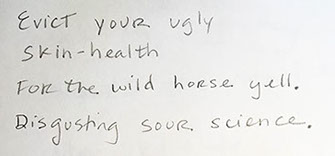 Evict your ugly
skin-health
For the wild horse yell.
Disgusting sour science.